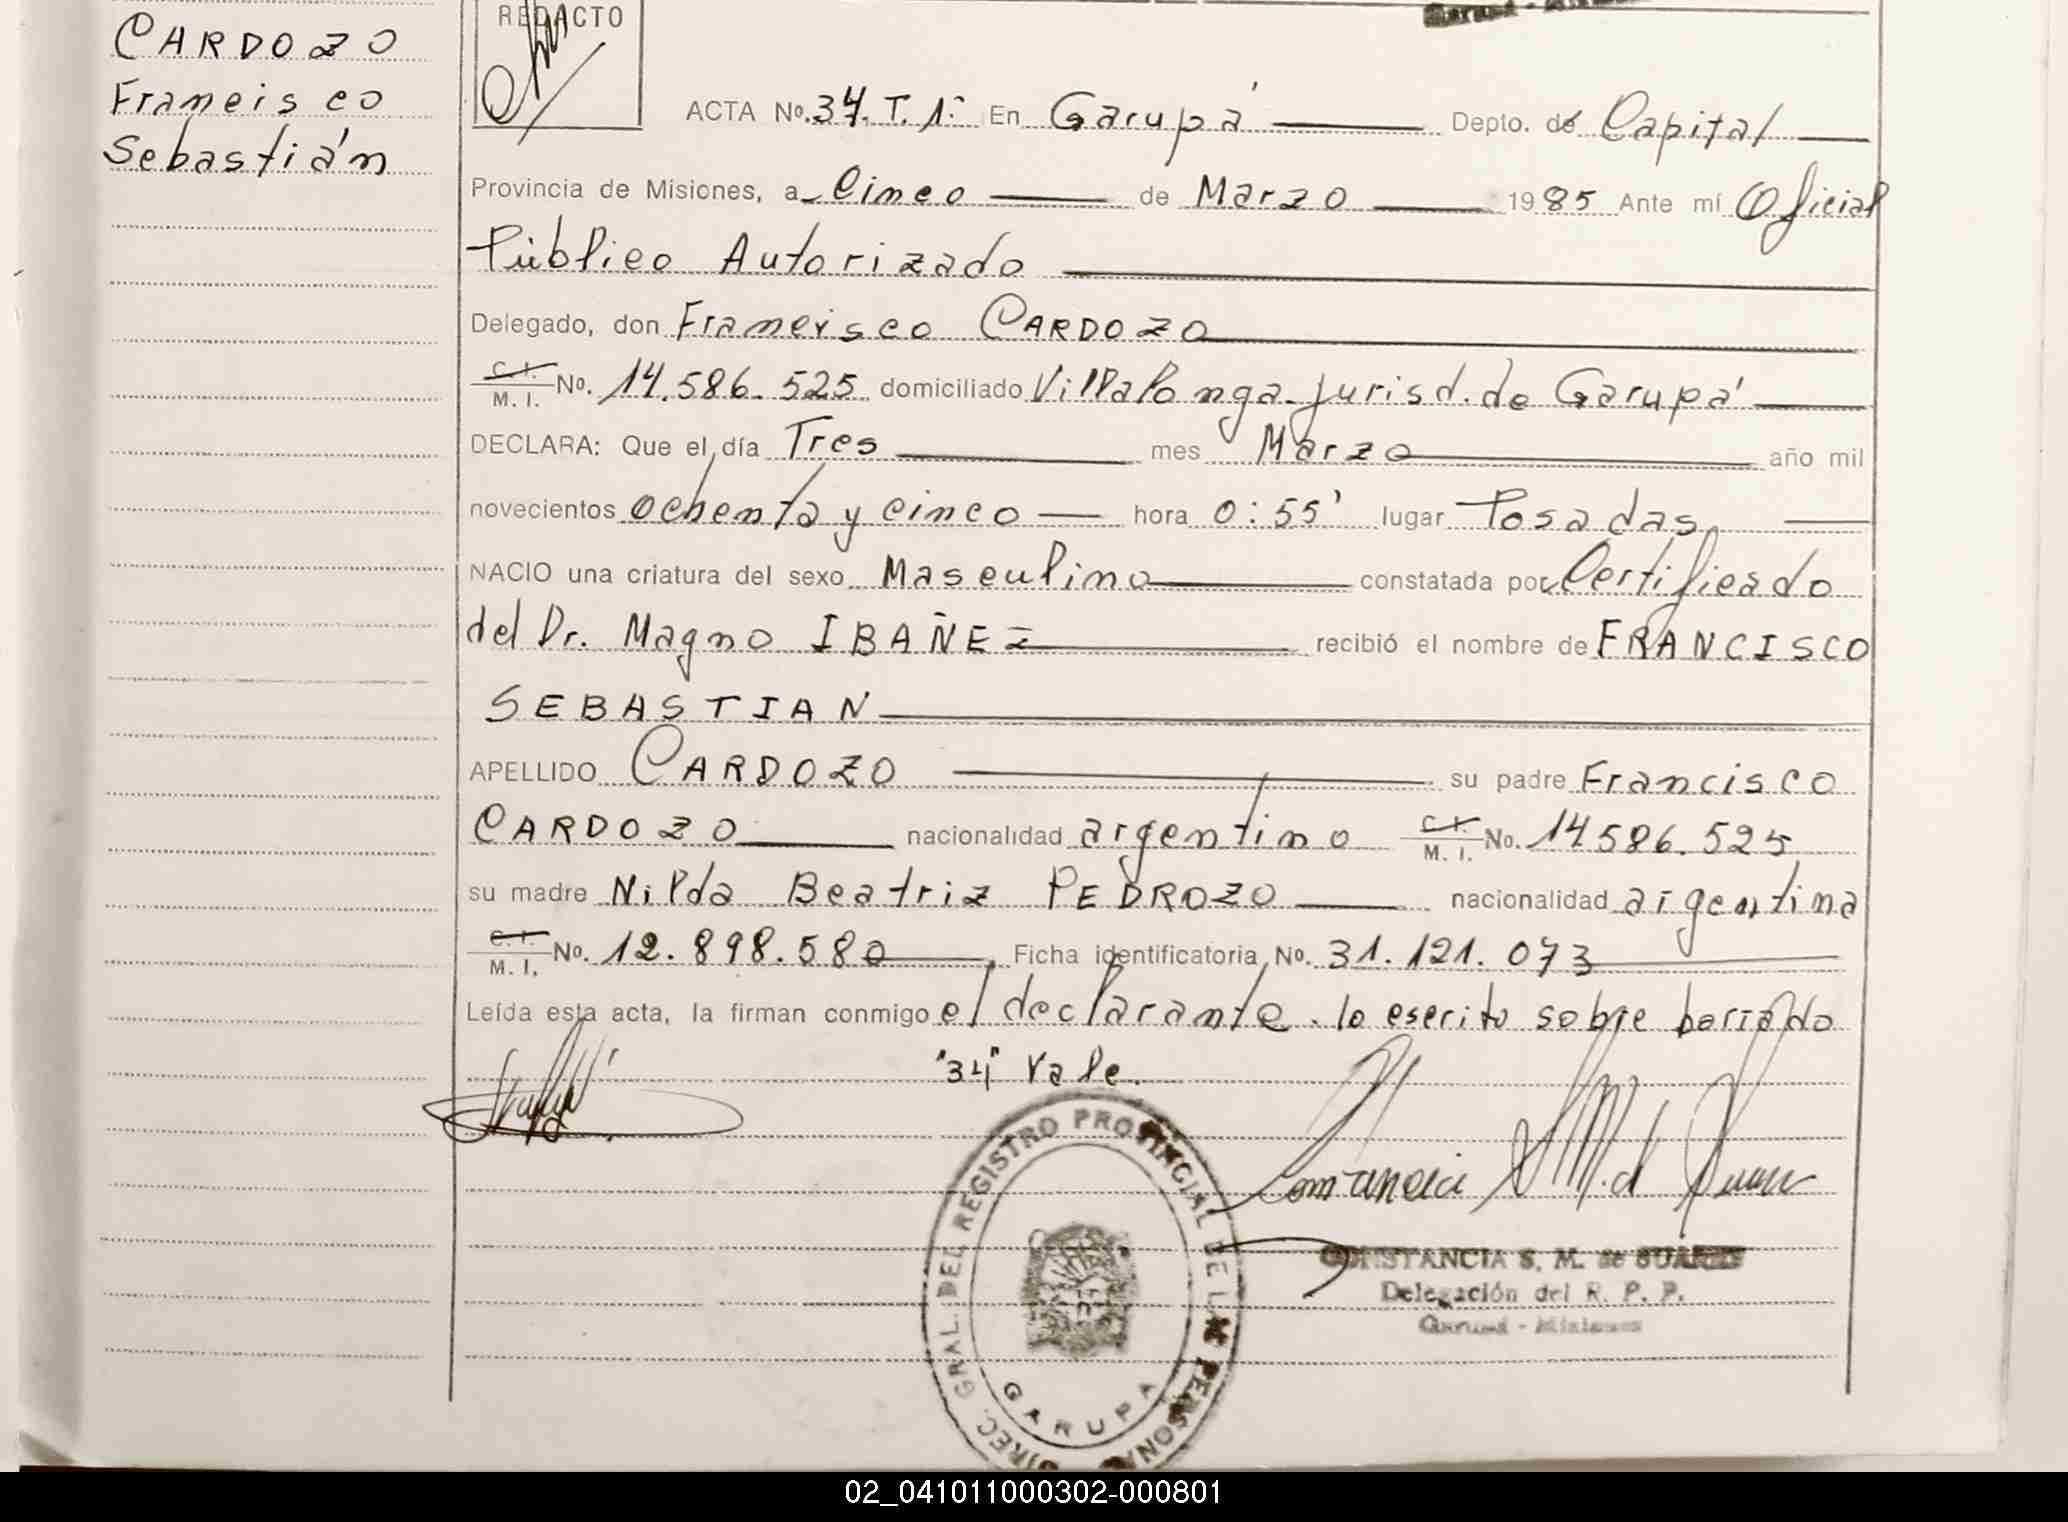 CARDOZO
Francisco
Sebastián
REDACTO
ACTA No. 34. T. 1º En Garupá Depto. de Capital
Provincia de Misiones, a Cinco de Marzo 1985 Ante mí Oficial
Público Autorizado
Delegado, don Francisco CARDOZO
C. I. M. I. No. 14.586.525 domiciliado Villalonga jurisd. de Garupá
DECLARA: Que el día Tres mes Marzo año mil
novecientos ochenta y cinco hora 0:55' lugar Posadas
NACIO una criatura del sexo Masculino constatada por Certificado
del Dr. Magno IBAÑEZ recibió el nombre de FRANCISCO
SEBASTIAN
APELLIDO CARDOZO su padre Francisco
CARDOZO nacionalidad argentino C. I. M. I. No. 14586.525
su madre Nilda Beatriz PEDROZO nacionalidad argentina
C. I. M. I. No. 12.898.580 Ficha identificatoria No. 31.121.073
Leída esta acta, la firman conmigo el declarante. lo escrito sobre borrado
"34" Vale.
DIREC. GRAL. DEL REGISTRO PROVINCIAL DE LAS PERSONAS
GARUPA
CONSTANCIA S. M. de SUAREZ
Delegación del R. P. P.
Garupá - Misiones
02_041011000302-000801